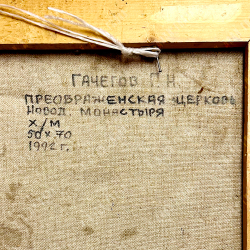 ГАЧЕГОВ П.Н.
ПРЕОБРАЖЕНСКАЯ ЦЕРКОВЬ
НОВОД. МОНАСТЫРЯ
Х/М
50 × 70
1992 г.